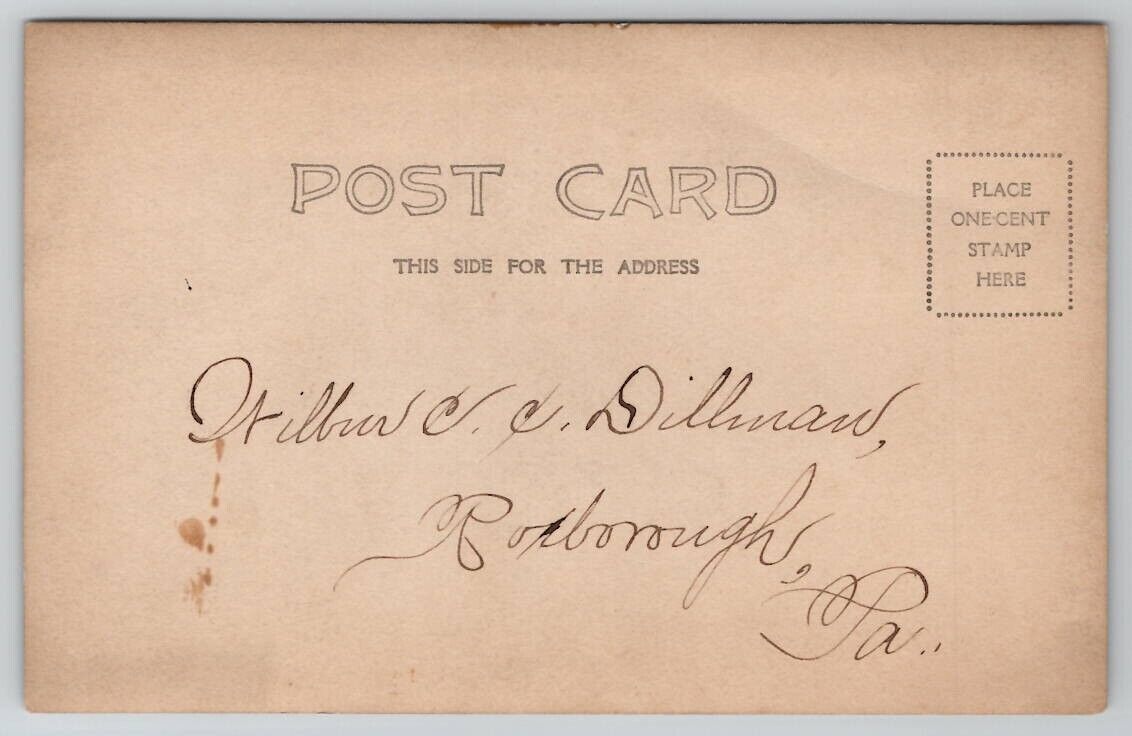 POST CARD
THIS SIDE FOR THE ADDRESS
PLACE
ONE CENT
STAMP
HERE
Wilbur C. C. Dillman,
Roxborough,
Pa.